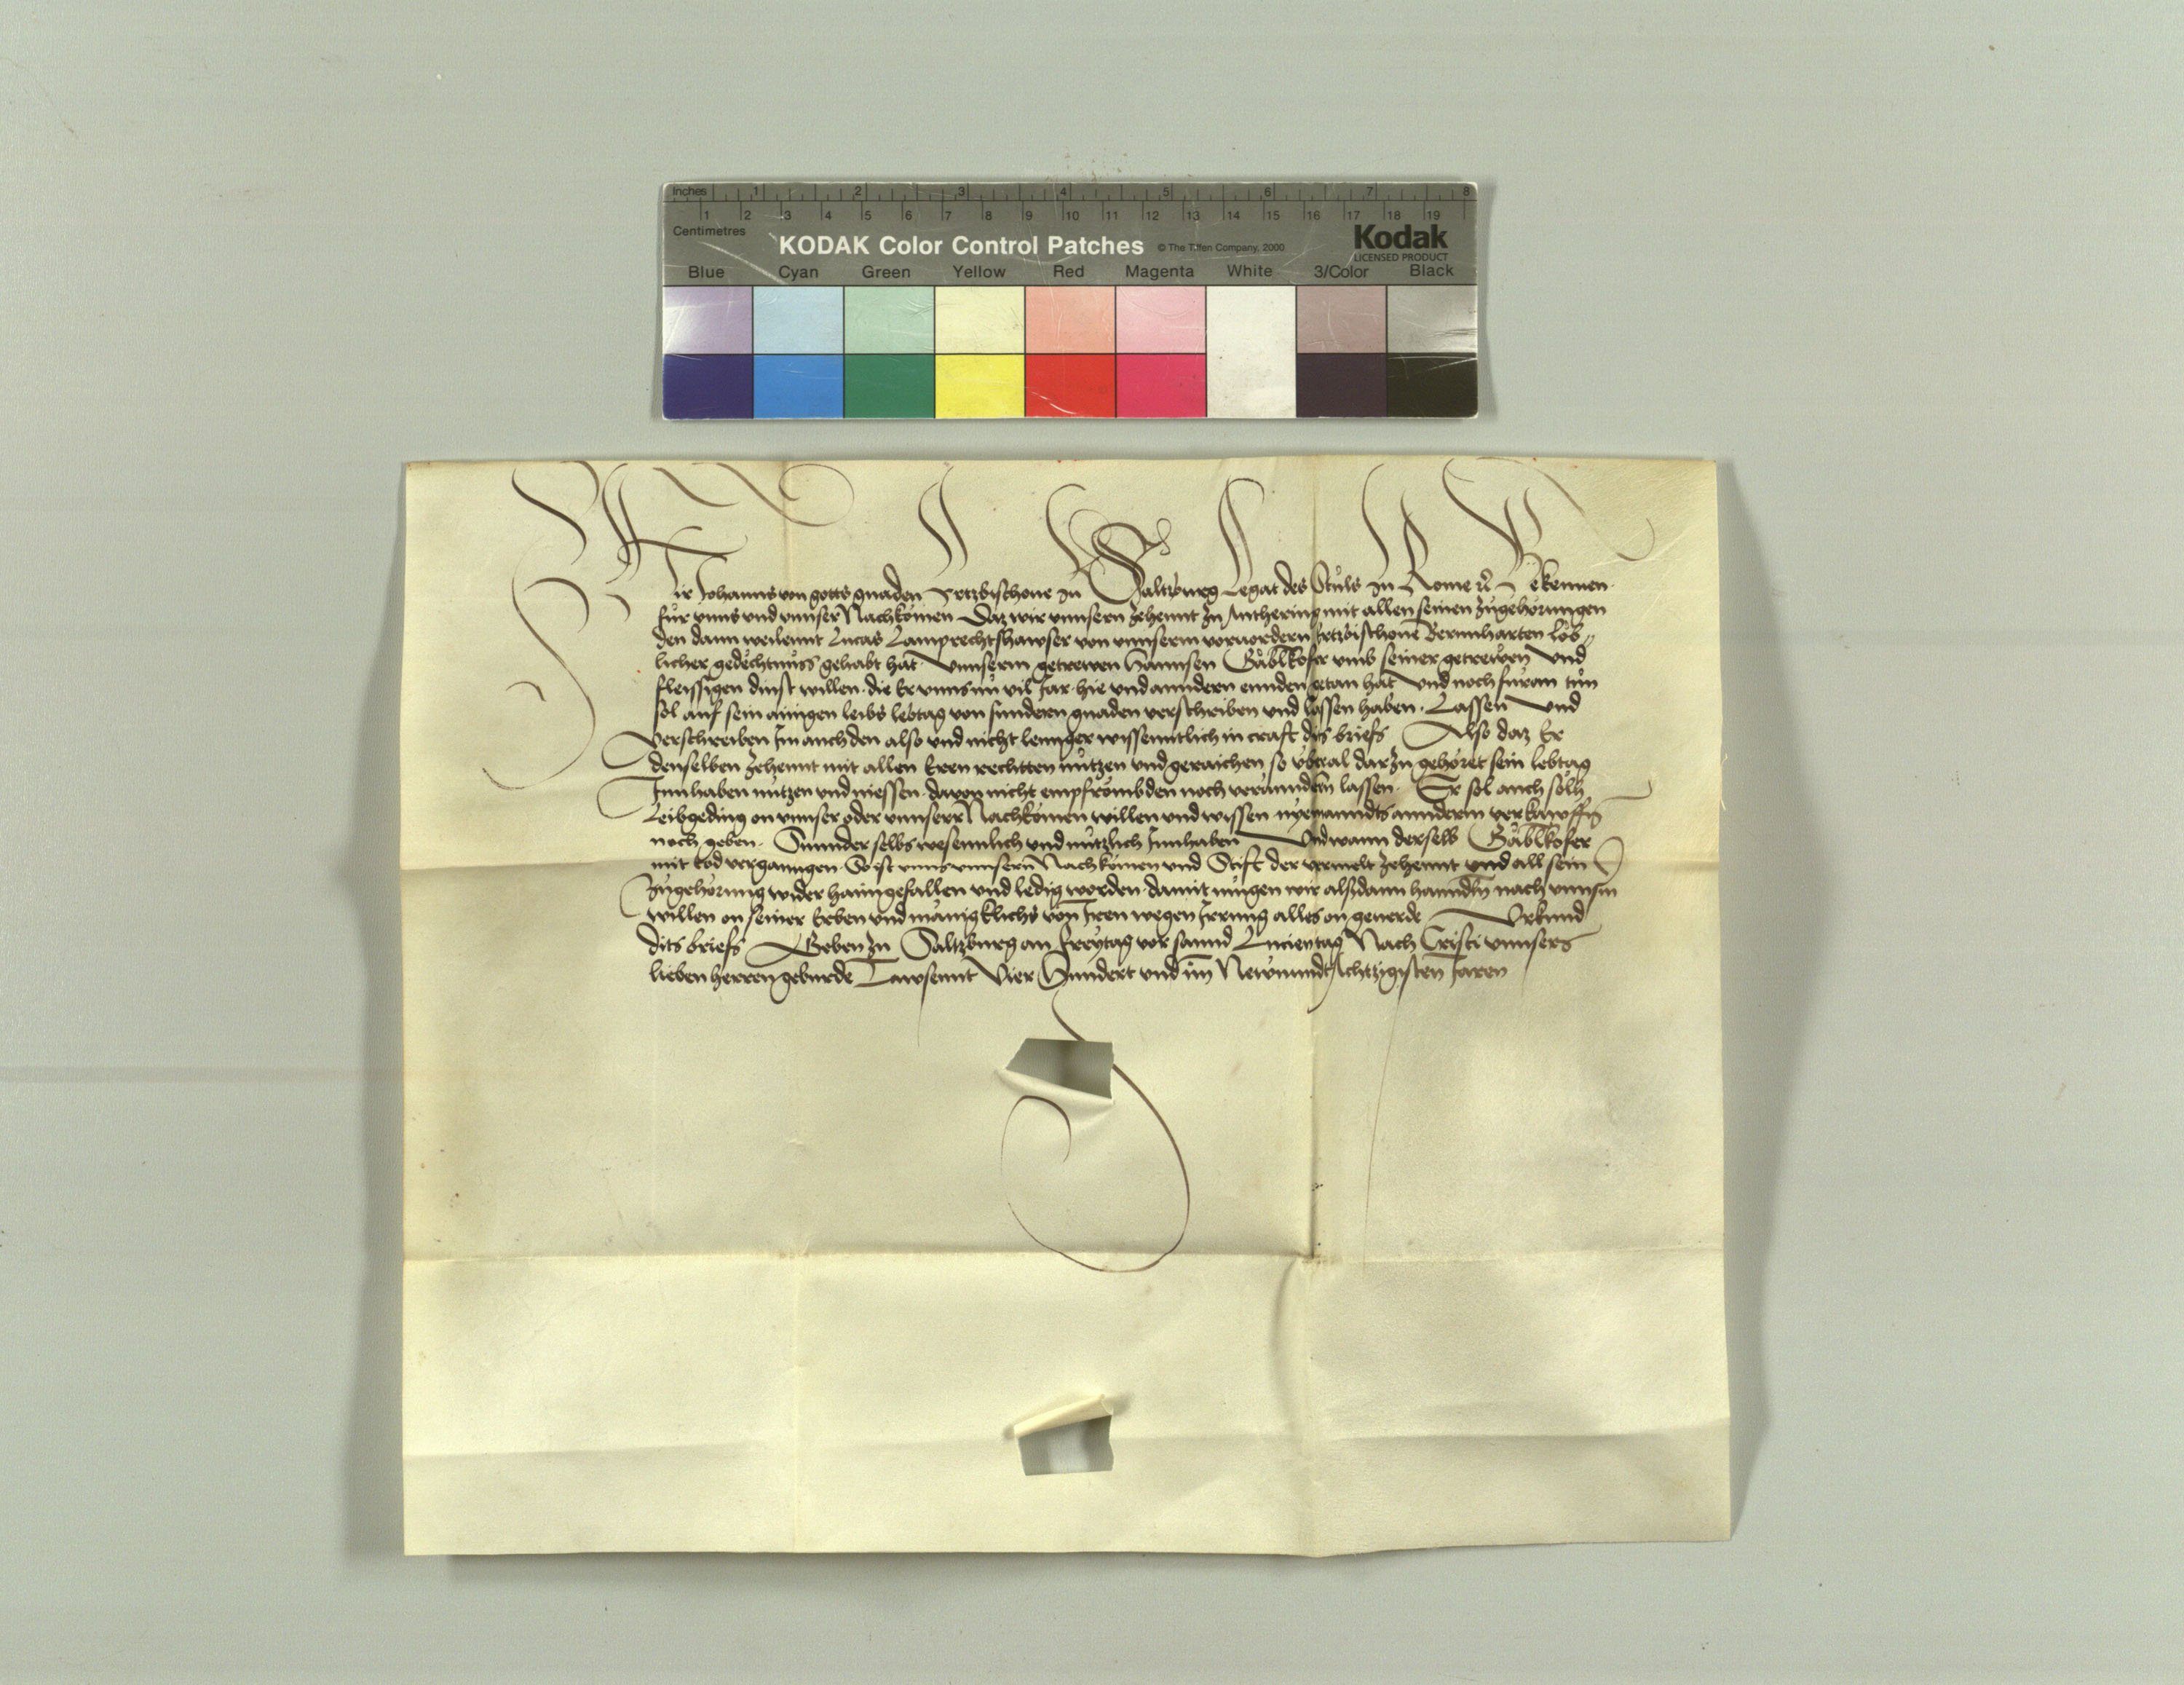 Inches 1 2 3 4 5 6 7 8
1 2 3 4 5 6 7 8 9 10 11 12 13 14 15 16 17 18 19
Centimetres
KODAK Color Control Patches © The Tiffen Company, 2000 Kodak
LICENSED PRODUCT
Blue Cyan Green Yellow Red Magenta White 3/Color Black
Wir Johanns von gotts gnaden Ertzbischoue zu Saltzburg Legat des Stůls zu Rome rc̃ Bekennen.
für vnns vnd vnnser Nachkomen Daz wir vnnsern zehennt zu Anthering mit allen seinen zugehörungen
den dann weilennt Lucas Lamprechtshawser von vnnserm voruordern Ertzbischoue Bernnharten lob„
licher gedëchtnüss gehabt hat. Vnnserm getrewen Hannsen Gäblkofer vmb seiner getrewen Vnd
fleissigen dinst willen. die Er vnns nu vil Jar. hie vnd anndern ennden getan hat Vnd noch füran tůn
sol auf sein ainigen leibs lebtag von sundern gnaden verschreiben vnd lassen haben. Lassen Vnd
Verschreiben Im auch den also vnd nicht lennger wissenntlich in craft dits briefs Also daz Er
denselben zehennt mit allen Eren rechtten nützen vnd geraichen so vberal darzu gehöret sein lebtag
Innhaben nutzen vnd niessen. dauon nicht empfrömbden noch verännder̃n lassen. Er sol auch sölh
Leibgeding on vnnser oder vnnserr Nachkomen willen vnd wissen nyemanndts anndern verkawffen
noch geben. Sunnder selbs wesennlich vnd nützlich Innhaben Vnd wann derselb Gäblkofer
mit tod verganngen. So ist vnns vnnsern Nachkomen vnd Stift der vermelt zehennt vnd all sein
Zugehörung wider haimgefallen vnd ledig worden. damit mügen wir alssdann hanndl̃n nach vnnsm̃
willen on seiner Erben vnd mänigklichs von Iren wegen Irrung alles on geuerde Vrkund
dits briefs Geben zu Saltzburg an Freytag vor sannd Lucientag Nach Cristi vnnsers
lieben herren geburde Tawsennt Vier Hundert vnd im Newnundtachtzigisten Jaren